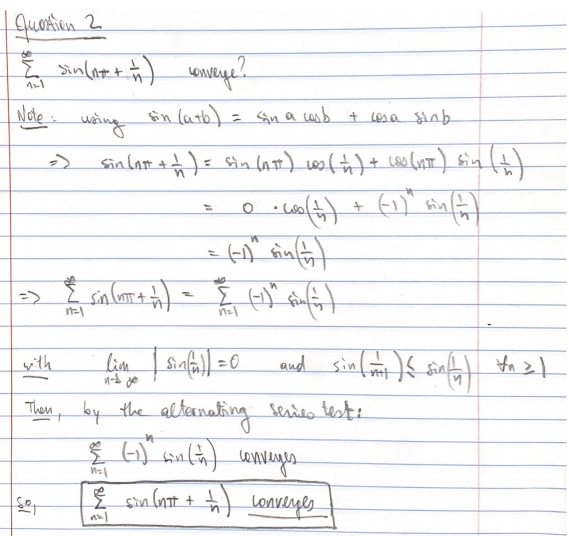 Question 2
∑_{n=1}^{∞} sin(nπ + 1/n) converge?
Note: using sin(a+b) = sin a cos b + cos a sin b
=> sin(nπ + 1/n) = sin(nπ) cos(1/n) + cos(nπ) sin(1/n)
= 0 · cos(1/n) + (-1)^n sin(1/n)
= (-1)^n sin(1/n)
=> ∑_{n=1}^{∞} sin(nπ + 1/n) = ∑_{n=1}^{∞} (-1)^n sin(1/n)
with lim_{n→∞} |sin(1/n)| = 0 and sin(1/(n+1)) ≤ sin(1/n) ∀n ≥ 1
Then, by the alternating series test:
∑_{n=1}^{∞} (-1)^n sin(1/n) converges
So, ∑_{n=1}^{∞} sin(nπ + 1/n) converges